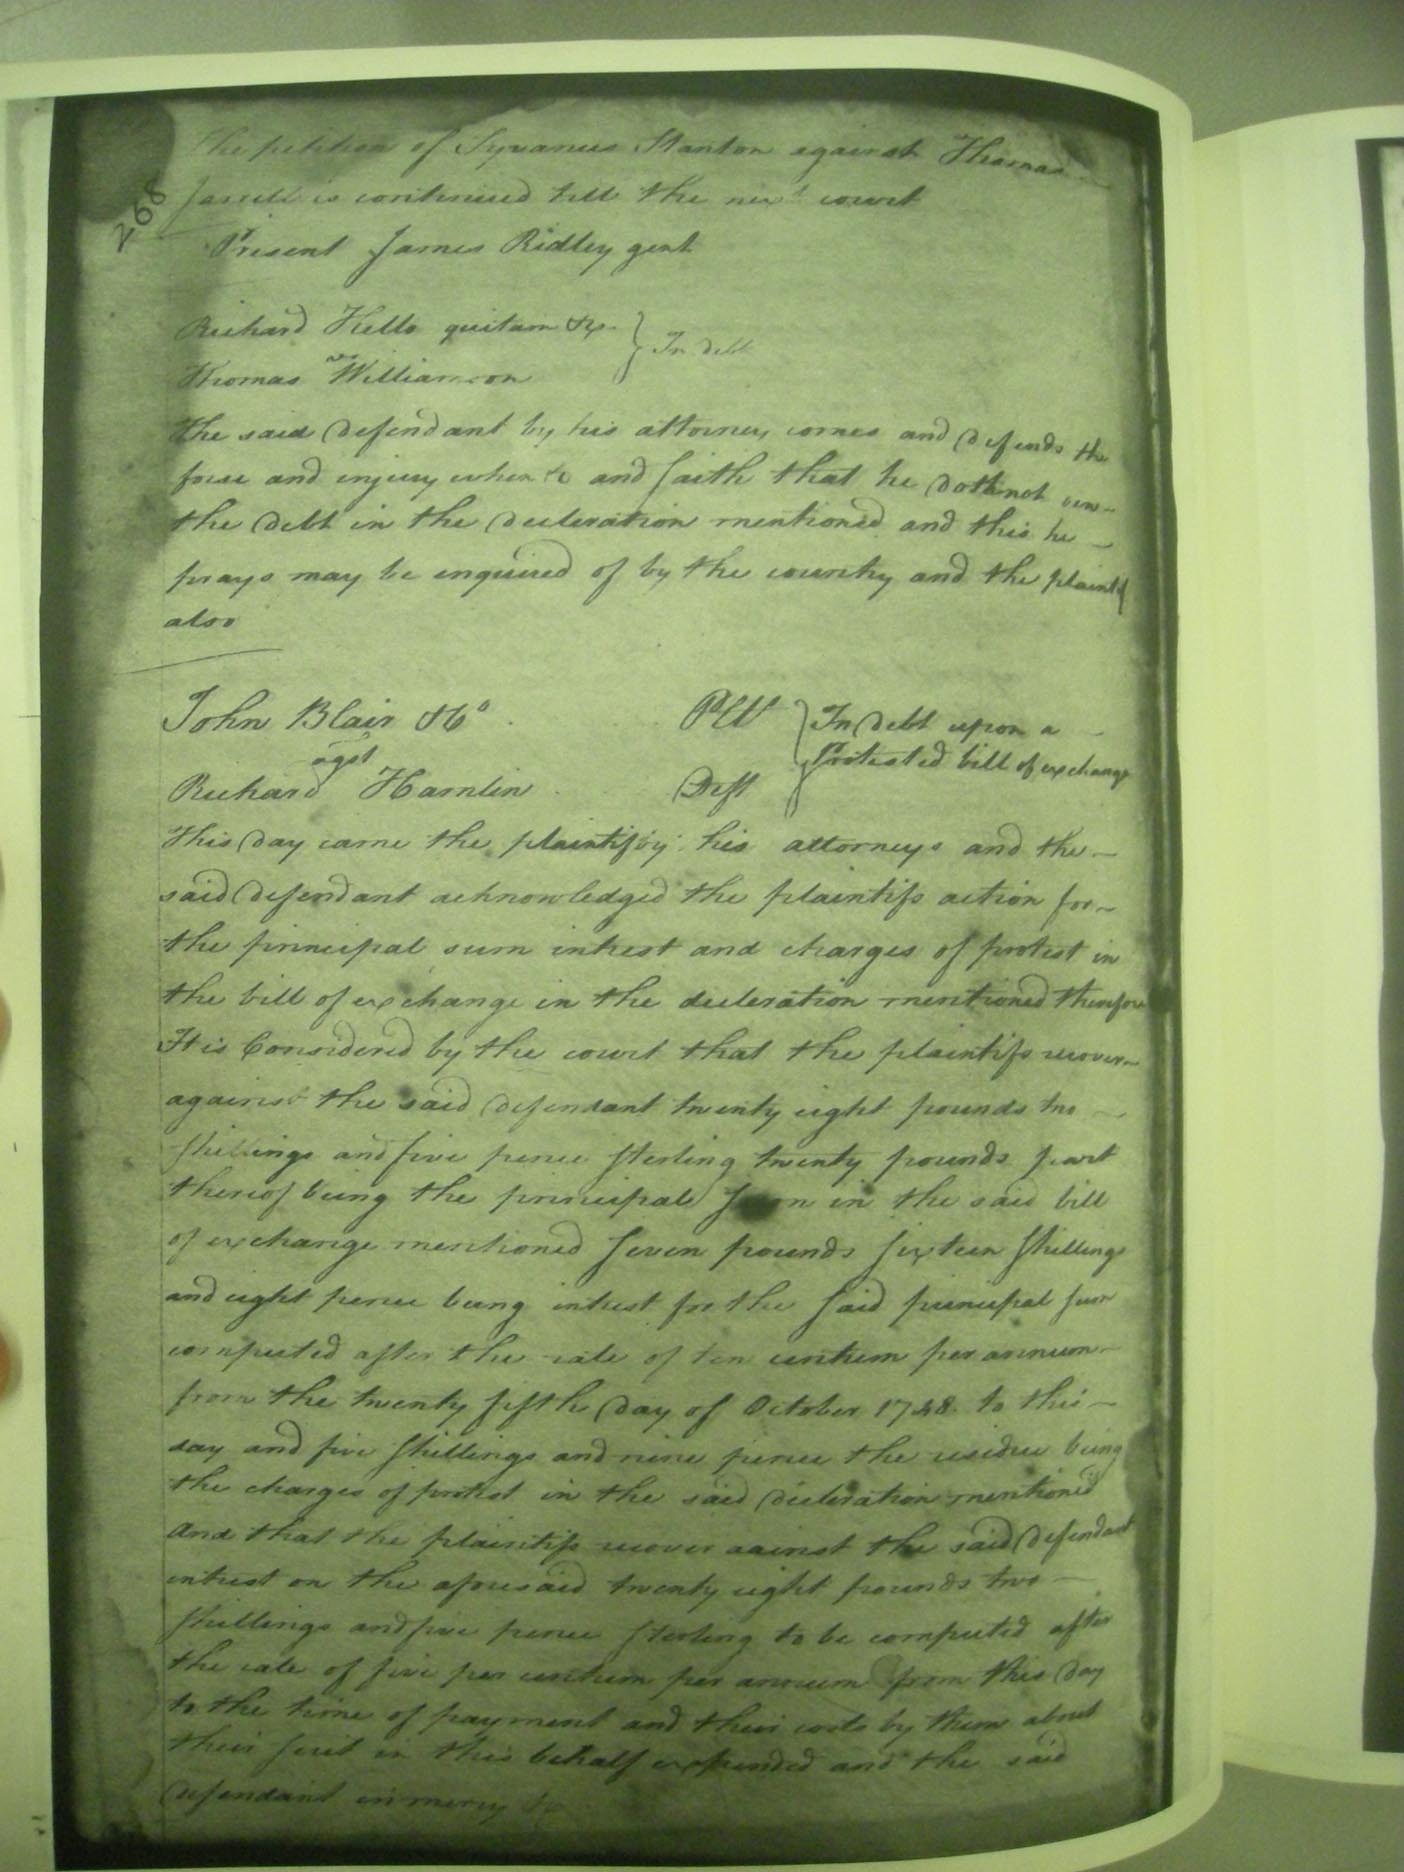 268
The petition of Sylvanus Stanton against Thomas
Jarrell is continued till the next court
Present James Ridley gent
Richard Kello quitam &c
vs
Thomas Williamson
In debt
The said defendant by his attorney comes and defends the
force and injury when &c and saith that he doth not owe
the debt in the decleration mentioned and this he
prays may be enquired of by the country and the plaintif
also
John Blair &Co Plt In debt upon a
agst Protested bill of exchange
Richard Hamlin Deft
This day came the plaintif by his attorneys and the
said defendant acknowledged the plaintifs action for
the principal sum intrest and charges of protest in
the bill of exchange in the decleration mentioned therefore
It is Considered by the court that the plaintifs recover
against the said defendant twenty eight pounds two
shillings and five pence sterling twenty pounds part
thereof being the principal in the said bill
of exchange mentioned seven pounds sixteen shillings
and eight pence being intrest for the said principal sum
computed after the rate of ten centum per annum
from the twenty fifth day of October 1748 to this
day and five shillings and nine pence the residue being
the charges of protest in the said decleration mentioned
And that the plaintifs recover aainst the said defendant
intrest on the aforesaid twenty eight pounds two
shillings and five pence sterling to be computed after
the rate of five per centum per annum from this day
to the time of payment and their costs by them about
their suit in this behalf expended and the said
defendant in mercy &c